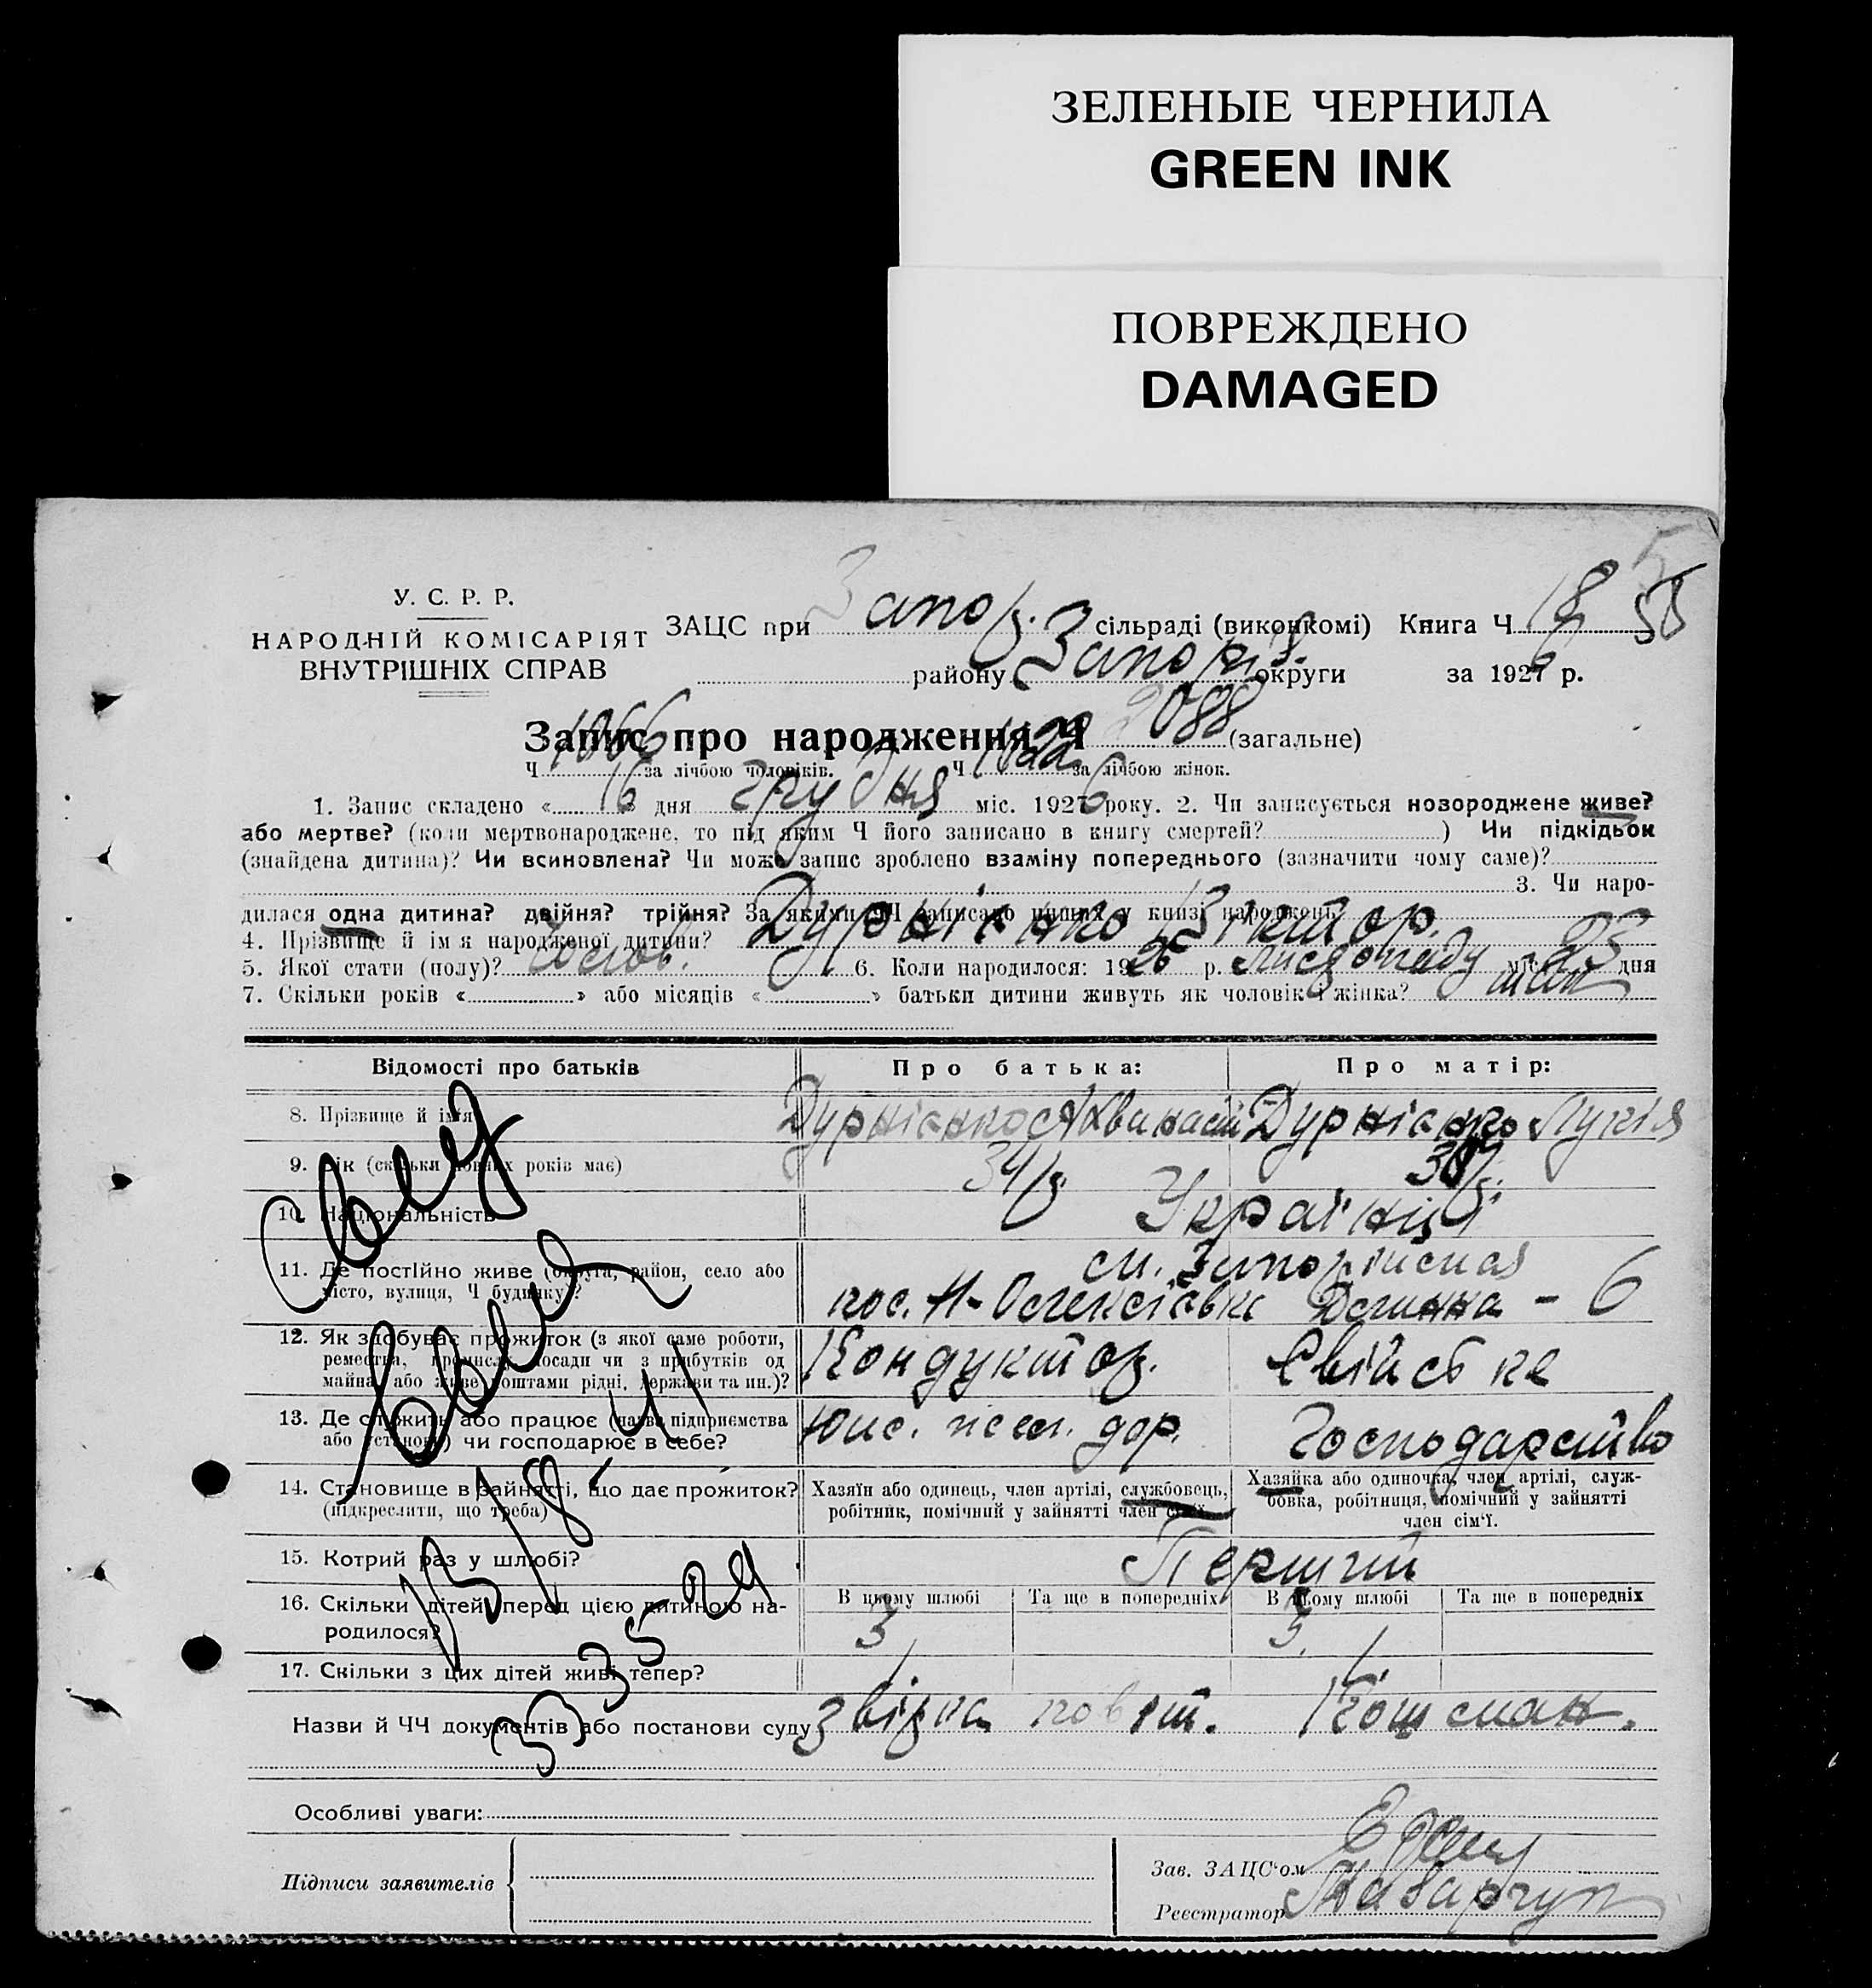 ЗЕЛЕНЫЕ ЧЕРНИЛА
GREEN INK
ПОВРЕЖДЕНО
DAMAGED
У. С. Р. Р.
НАРОДНІЙ КОМІСАРІЯТ
ВНУТРІШНІХ СПРАВ
ЗАЦС при Запоріз. сільраді (виконкомі) Книга Ч 18
району Запоріз. округи за 1926 р.
Запис про народження Ч 2088 (загальне)
Ч 1066 за лічбою чоловіків. Ч 1022 за лічбою жінок.
1. Запис складено « 16 » дня грудня міс. 1926 року. 2. Чи записується новороджене живе?
або мертве? (коли мертвонароджене, то під яким Ч його записано в книгу смертей? ) Чи підкідьок
(знайдена дитина)? Чи всиновлена? Чи може запис зроблено взаміну попереднього (зазначити чому саме)?
3. Чи наро-
дилася одна дитина? двійня? трійня? За якими ЧЧ записано инших у книзі народжень?
4. Прізвище й ім'я народженої дитини? Дурнієнко Віктор.
5. Якої стати (полу)? Чолов. 6. Коли народилося: 1926 р. Листопаду міс. 23 дня
7. Скільки років « » або місяців « » батьки дитини живуть як чоловік і жінка?
Відомості про батьків Про батька: Про матір:
8. Прізвище й ім'я Дурнієнко Дурнієнко Лукія
9. Вік (скільки повних років має) 34 р.
10. Національність Українці
11. Де постійно живе (округа, район, село або
місто, вулиця, Ч будинку)? пос. Н-Олексієвка - 6
12. Як здобуває прожиток (з якої саме роботи,
ремества, промислу, посади чи з прибутків од
майна, або живе коштами рідні, держави та ин.)? Кондуктор. Свійське
13. Де служить або працює (назва підприємства
або установи) чи господарює в себе? Юж. зел. дор. Господарство
14. Становище в зайнятті, що дає прожиток?
(підкреслити, що треба)
Хазяїн або одинець, член артілі, службовець,
робітник, помічний у зайнятті член сім'ї.
Хазяйка або одиночка, член артілі, служ-
бовка, робітниця, помічний у зайнятті
член сім'ї.
15. Котрий раз у шлюбі? Перший
16. Скільки дітей перед цією дитиною на-
родилося?
В цьому шлюбі Та ще в попередніх В цьому шлюбі Та ще в попередніх
3 3
17. Скільки з цих дітей живі тепер? 1 1
Назви й ЧЧ документів або постанови суду звідка повит.
Особливі уваги:
Підписи заявителів
Зав. ЗАЦС'ом
Реєстратор